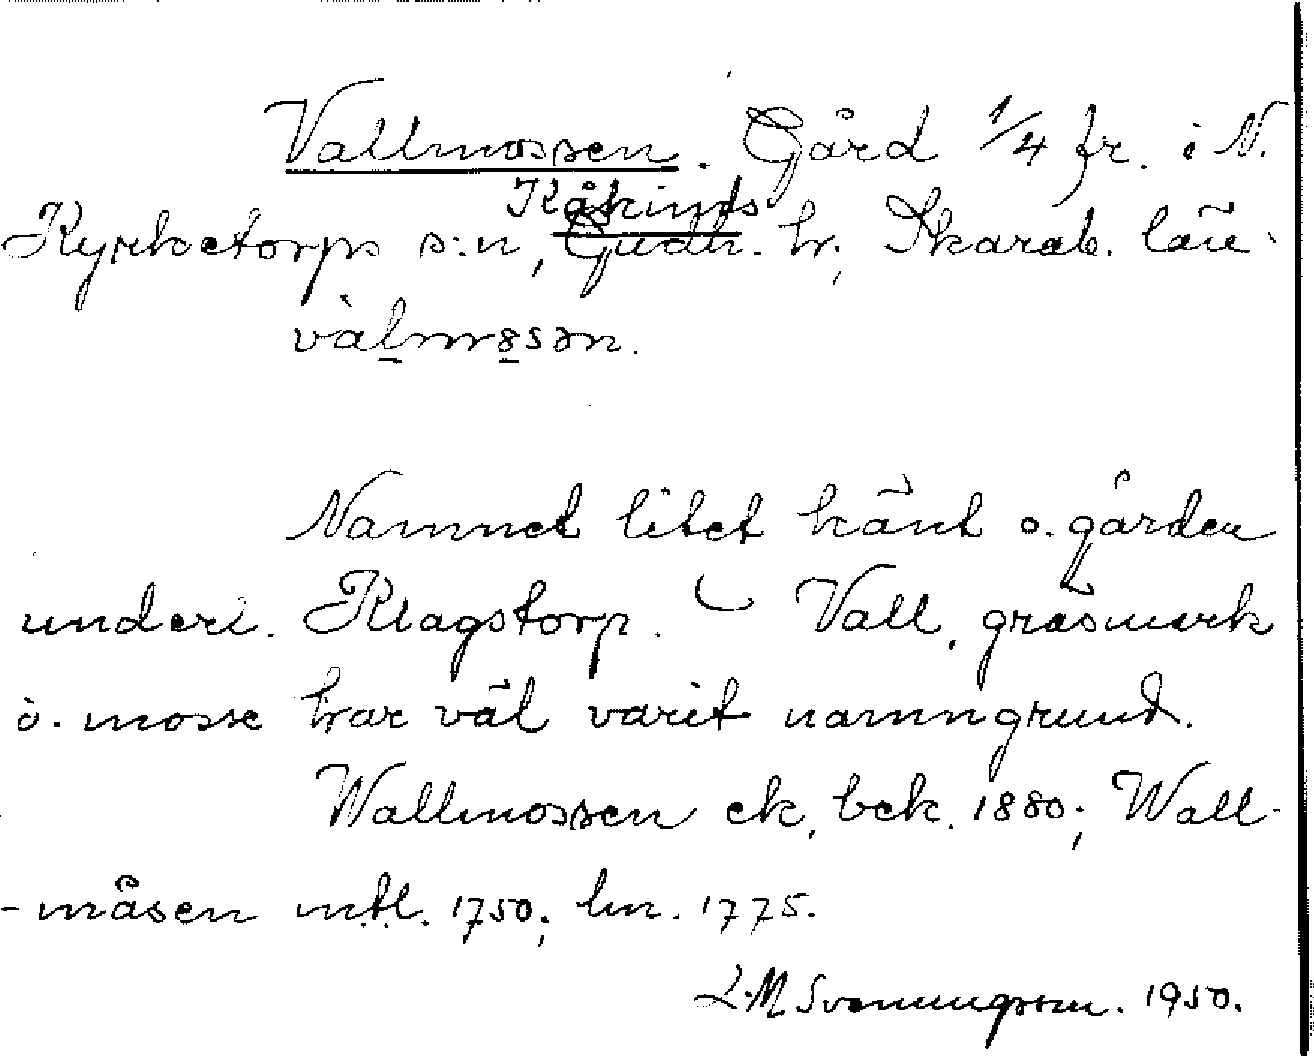 Vallmossen. Gård 1/4 fr. i N.
Kåkinds
Kyrketorps s:n, Gudh. hr, Skarab. län
vàlmosən.
Namnet litet känt o. gården
underl. Klagstorp. Vall, gräsmark
o. mosse har väl varit namngrund.
Wallmossen ek. bek. 1880; Wall-
-måsen mtl. 1750; hm. 1775.
L.M Svenungsson. 1950.